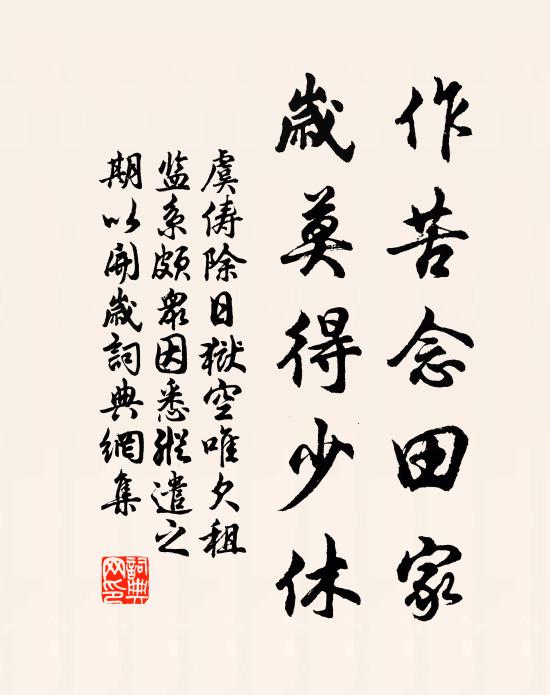 作苦念田家
歲莫得少休
虞俦除日獄空唯欠租
监系頗眾因悉縱遣之
期以開歲詞典網集
詞典网印